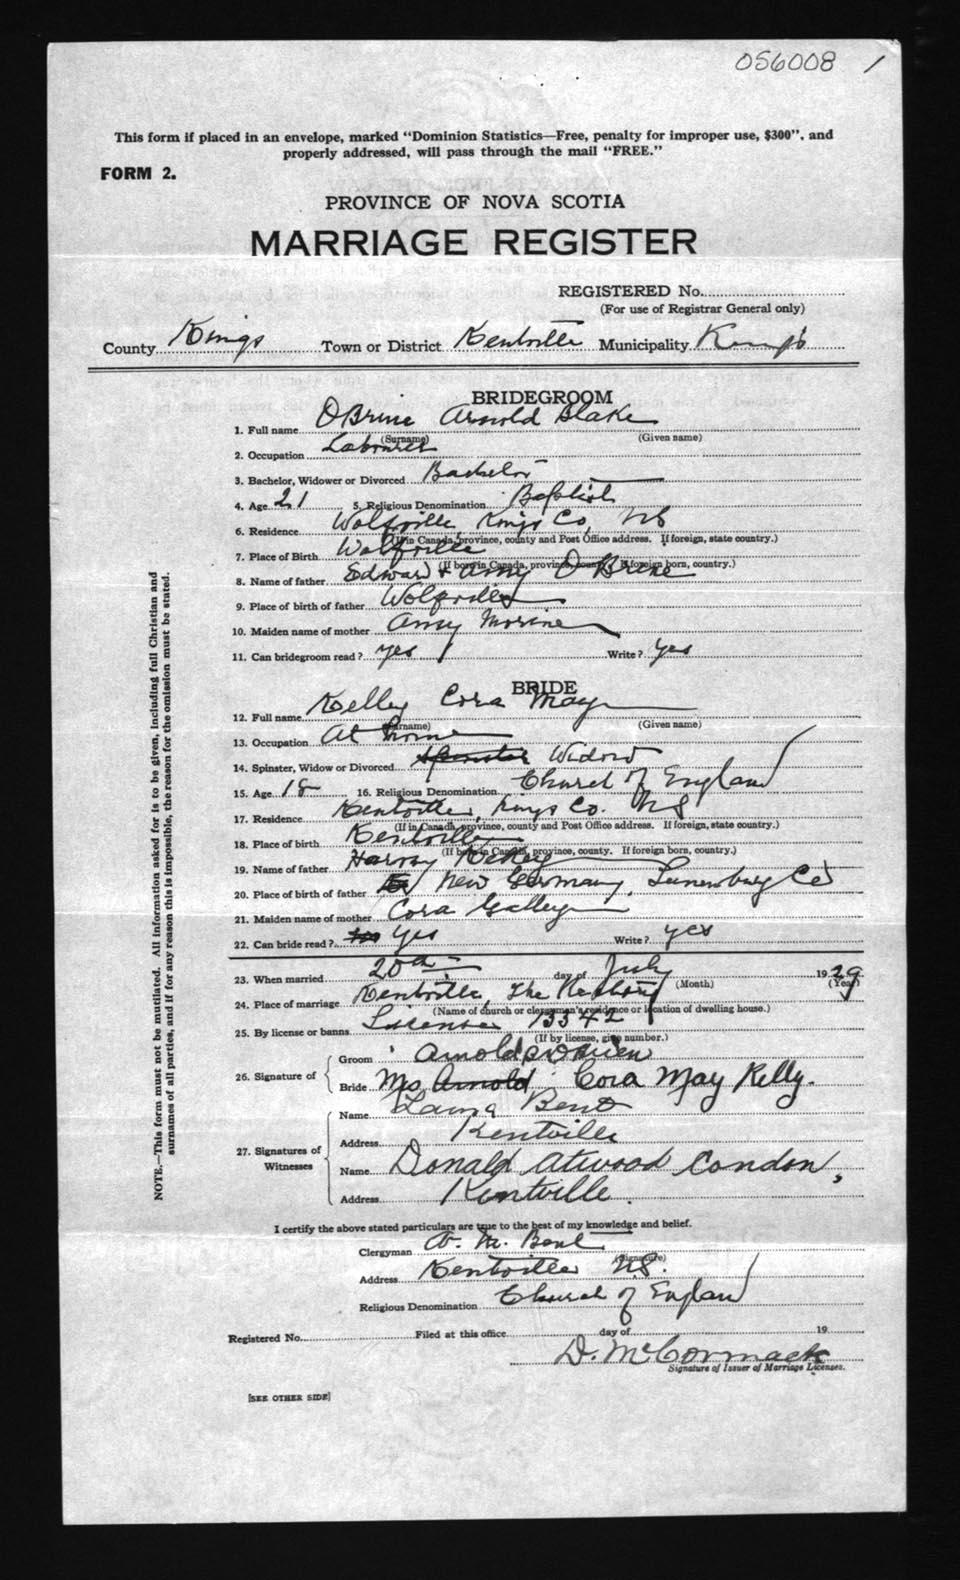 056008 1
This form if placed in an envelope, marked "Dominion Statistics—Free, penalty for improper use, $300", and
properly addressed, will pass through the mail "FREE."
FORM 2.
PROVINCE OF NOVA SCOTIA
MARRIAGE REGISTER
REGISTERED No.
(For use of Registrar General only)
County Kings Town or District Kentville Municipality Kings
BRIDEGROOM
1. Full name OBrine Arnold Blake
(Surname) (Given name)
2. Occupation Labourer
3. Bachelor, Widower or Divorced Bachelor
4. Age 21 5. Religious Denomination Baptist
6. Residence Wolfville, Kings Co, NS
(If in Canada, province, county and Post Office address. If foreign, state country.)
7. Place of Birth Wolfville
(If born in Canada, province, county. If foreign born, country.)
8. Name of father Edward & Amy O Brine
9. Place of birth of father Wolfville
10. Maiden name of mother Amy Morine
11. Can bridegroom read? yes Write? yes
BRIDE
12. Full name Kelley Cora May
(Surname) (Given name)
13. Occupation At home
14. Spinster, Widow or Divorced Spinster Widow
15. Age 18 16. Religious Denomination Church of England
17. Residence Kentville, Kings Co. NS
(If in Canada, province, county and Post Office address. If foreign, state country.)
18. Place of birth Kentville
(If born in Canada, province, county. If foreign born, country.)
19. Name of father Harvey
20. Place of birth of father New Germany, Lunenburg Co
21. Maiden name of mother Cora
22. Can bride read? yes Write? yes
23. When married 20th day of July 1929
(Month) (Year)
24. Place of marriage Kentville, The Rectory
(Name of church or clergyman's residence or location of dwelling house.)
25. By license or banns License 13342
(If by license, give number.)
26. Signature of
Groom Arnold B OBrien
Bride Mrs Arnold Cora May Kelly.
27. Signatures of
Witnesses
Name Laura Bent
Address Kentville
Name Donald Atwood Condon,
Address Kentville.
I certify the above stated particulars are true to the best of my knowledge and belief.
Clergyman Bent
(Signature)
Address Kentville NS.
Religious Denomination Church of England
Registered No. Filed at this office day of 19
D. McCormack
Signature of Issuer of Marriage Licenses.
[SEE OTHER SIDE]
NOTE.—This form must not be mutilated. All information asked for is to be given, including full Christian and
surnames of all parties, and if for any reason this is impossible, the reason for the omission must be stated.